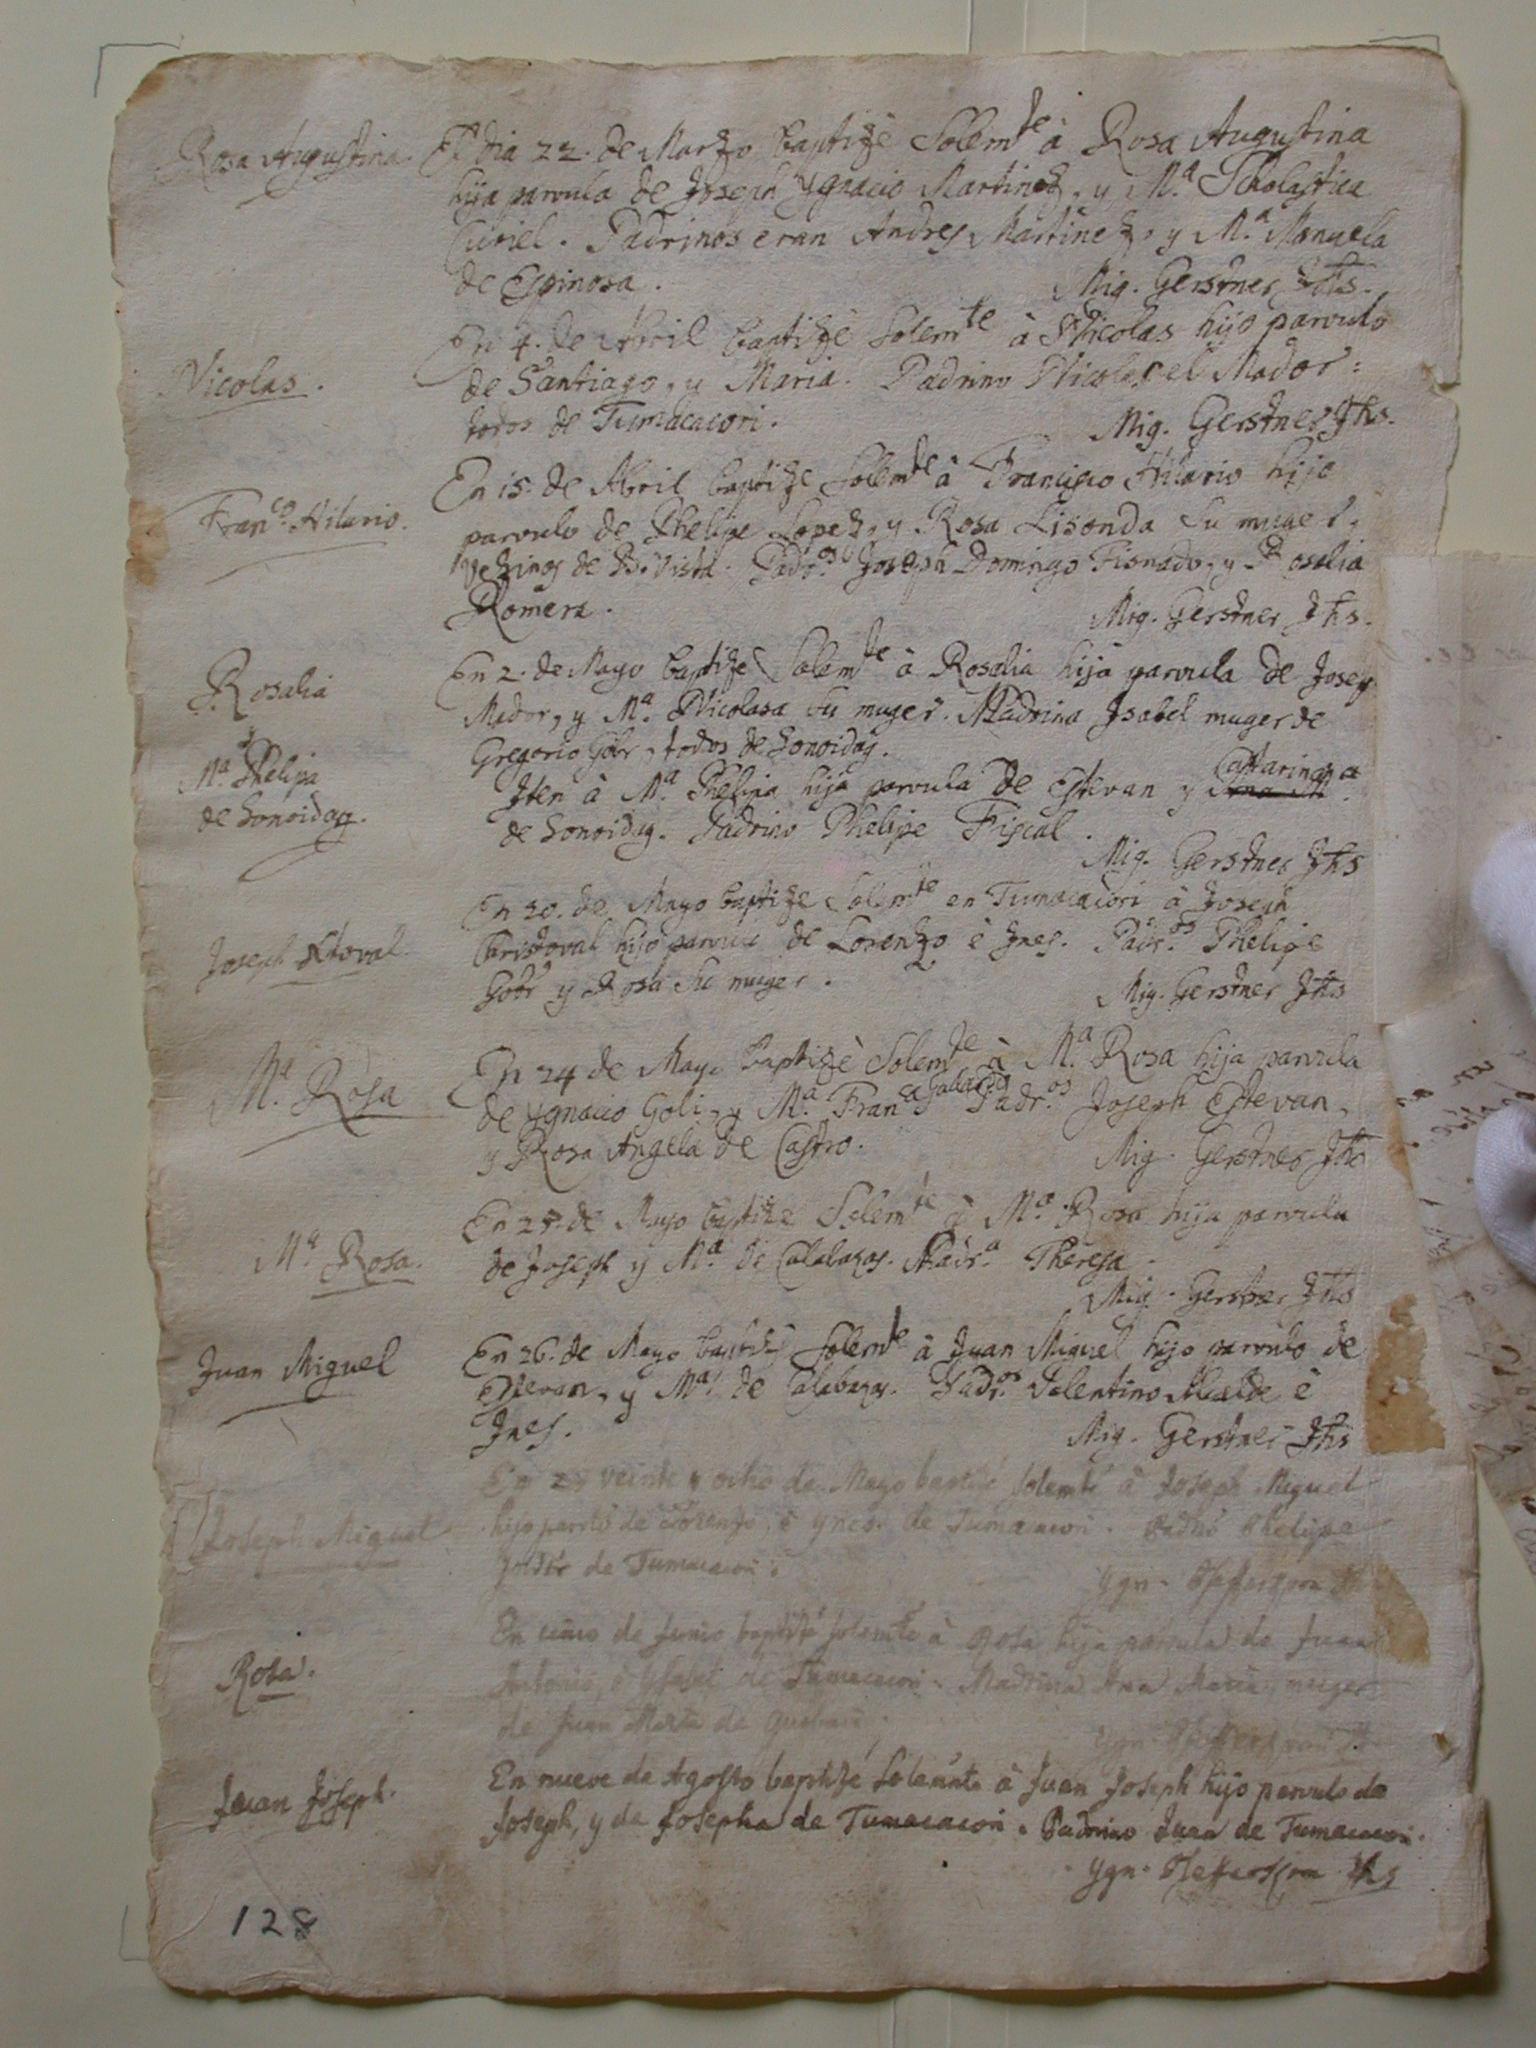 Rosa Augustina. El dia 22. de Marzo baptizè Solemte à Rosa Augustina
hija parvula de Joseph Ygnacio Martinez, y Ma. Scholastica
Curiel. Padrinos eran Andres Martinez, y Ma. Manuela
de Espinosa. Mig. Gerstner Jhs.
En 4. de Abril baptizè Solemte à Nicolas hijo parvulo
Nicolas. de Santiago, y Maria. Padrino Nicolas el Mador:
todos de Tumacacori. Mig. Gerstner Jhs.
En 15. de Abril baptize Solemte à Francisco Hilario hijo
Franco. Hilario. parvulo de Phelipe Lopez, y Rosa Lisonda Su muger,
Vezinos de B. Vista. Padros. Joseph Domingo Tisnado, y Rosalia
Romera. Mig. Gerstner Jhs.
Rosalia En 2. de Mayo baptize Solemte à Rosalia hija parvula de Josep
Mador, y Ma. Nicolasa Su muger. Madrina Isabel muger de
Gregorio Gobr, todos de Sonoidag.
Ma. Phelipa Iten à Ma. Phelipa hija parvula de Estevan y Cattarina
de Sonoidag. de Sonoidag. Padrino Phelipe Fiscal.
Mig. Gerstner Jhs
En 20. de Mayo baptize Solemte en Tumacacori à Joseph
Joseph Xtoval. Christoval hijo parvulo de Lorenzo è Ines. Padros. Phelipe
Gobr y Rosa Su muger. Mig. Gerstner Jhs
Ma. Rosa En 24 de Mayo baptizè Solemte à Ma. Rosa hija parvula
de Ygnacio Goli, y Ma. Franca Gallarda Padros. Joseph Estevan,
y Rosa Angela de Castro. Mig. Gerstner Jhs
En 25. de Mayo baptize Solemte à Ma. Rosa hija parvula
Ma Rosa. de Joseph y Ma. de Calabazas. Madra. Theresa.
Mig. Gerstner Jhs
Juan Miguel En 26. de Mayo baptizè Solemte à Juan Miguel hijo parvulo de
Estevan, y Ma. de Calabazas. Padros. Valentino Alcalde è
Ines. Mig. Gerstner Jhs
En veinte y ocho de Mayo baptizè Solemte à Joseph Miguel
Joseph Miguel hijo parvlo de Lorenzo, è Ynes de Tumacacori. Padno Phelipe
de Tumacacori. Ygn. Pfefferkorn Jhs
En cinco de Junio baptizè Solemte à Rosa hija parvula de Juan
Rosa. Antonio, è Ysabel de Tumacacori. Madrina Ana Maria, muger
de Juan Maria de Guebavi. Ygn. Pfefferkorn Jhs
Juan Joseph. En nueve de Agosto baptizè Solemnte à Juan Joseph hijo parvulo de
Joseph, y de Josepha de Tumacacori. Padrino Juan de Tumacacori.
Ygn. Pfefferkorn Jhs
128